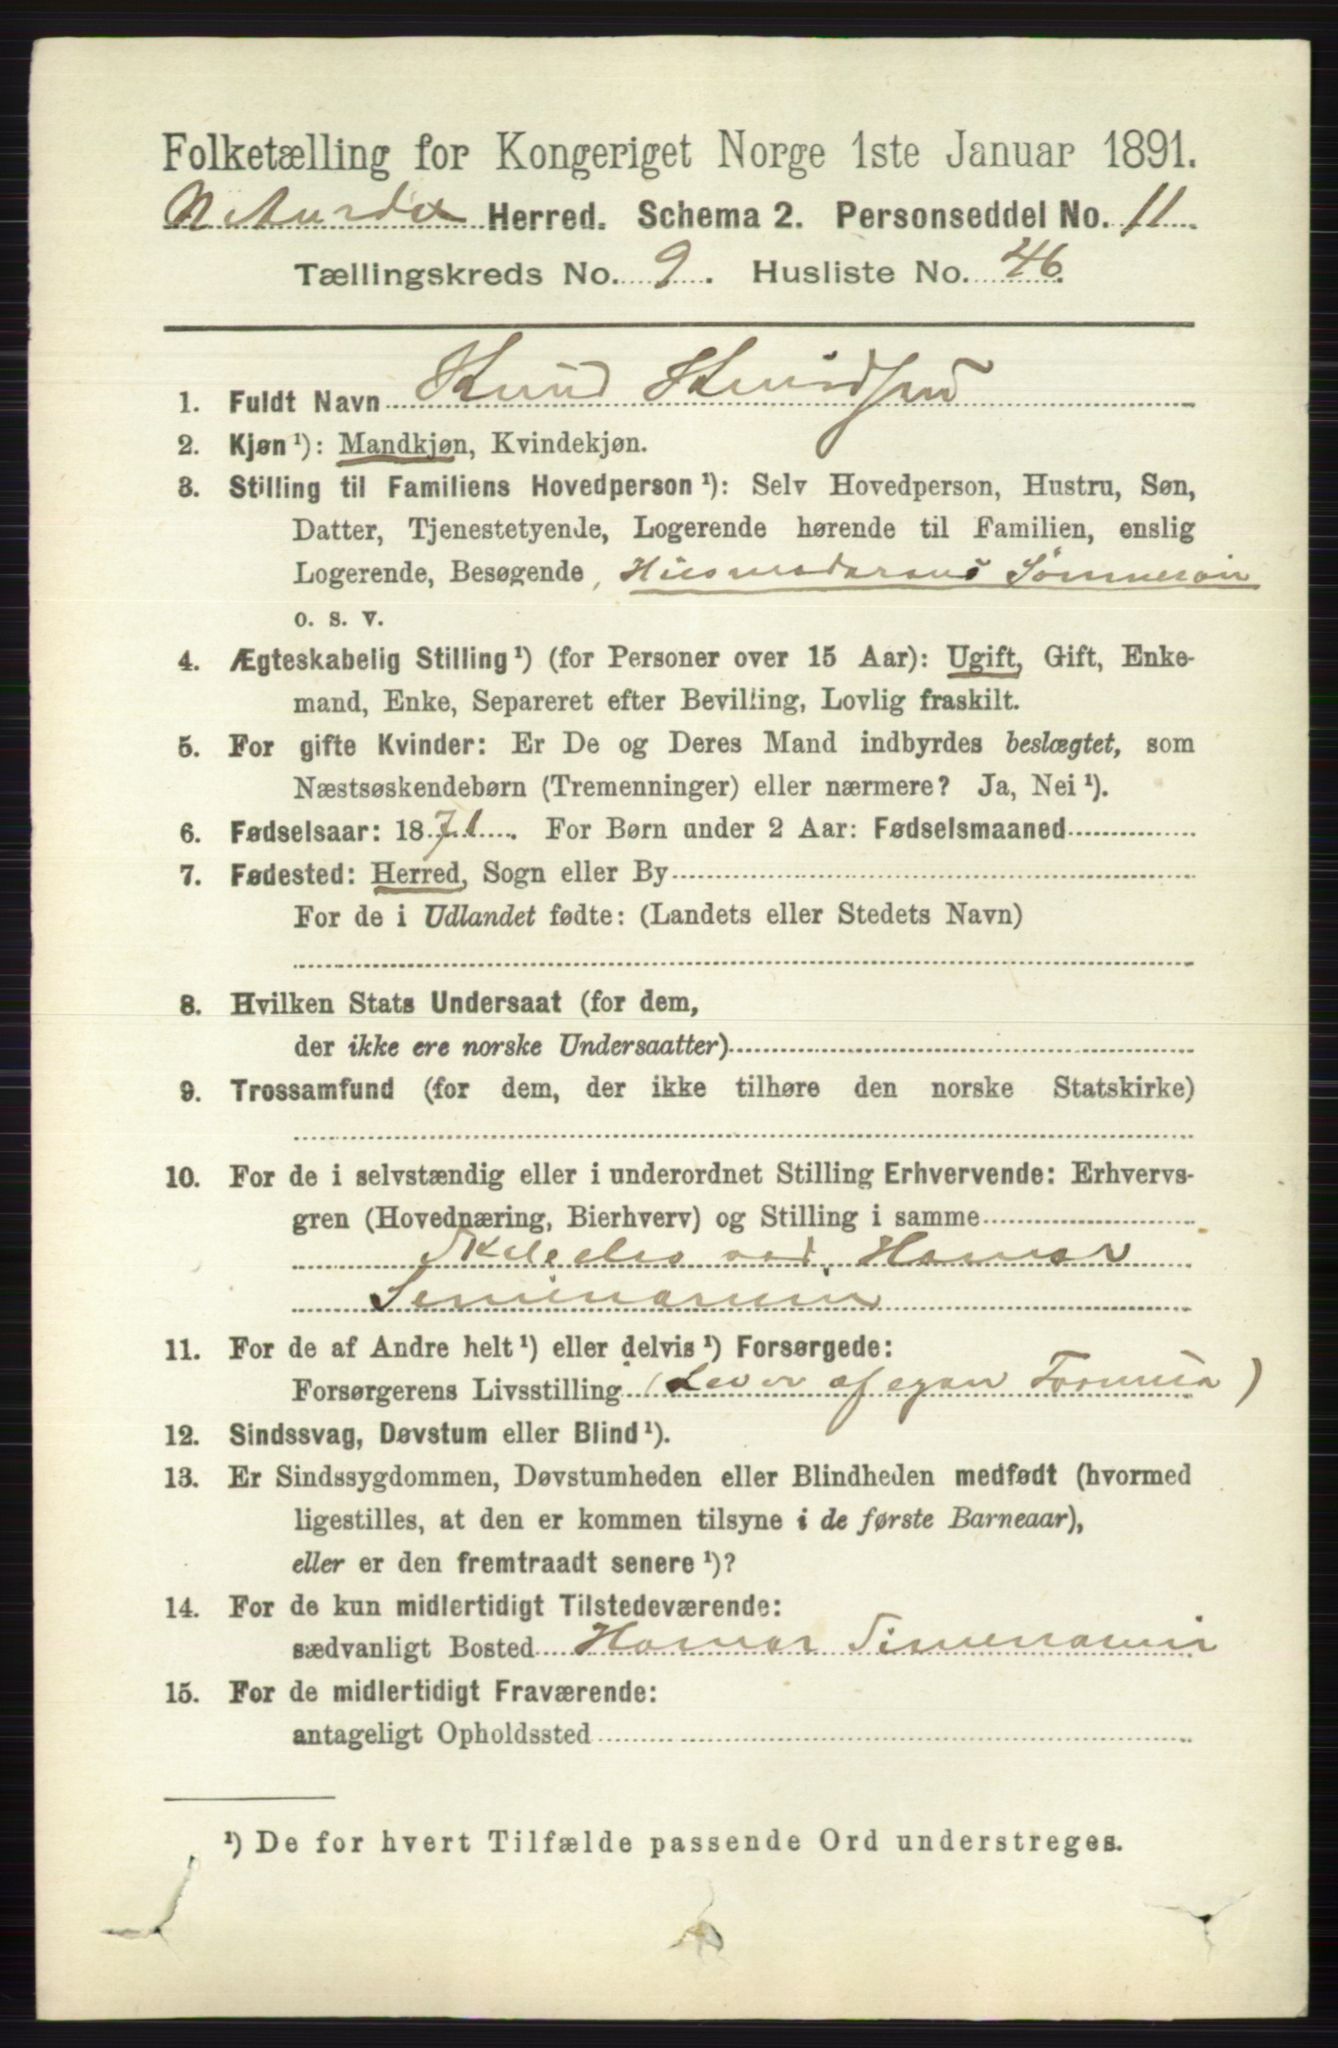 Folketælling for Kongeriget Norge 1ste Januar 1891.
N. Aurdal Herred. Schema 2. Personseddel No. 11
Tællingskreds No. 9. Husliste No. 46
1. Fuldt Navn Knud Knudsen
2. Kjøn ¹): Mandkjøn, Kvindekjøn.
3. Stilling til Familiens Hovedperson ¹): Selv Hovedperson, Hustru, Søn,
Datter, Tjenestetyende, Logerende hørende til Familien, enslig
Logerende, Besøgende, Husmoderens
o. s. v.
4. Ægteskabelig Stilling ¹) (for Personer over 15 Aar): Ugift, Gift, Enke-
mand, Enke, Separeret efter Bevilling, Lovlig fraskilt.
5. For gifte Kvinder: Er De og Deres Mand indbyrdes beslægtet, som
Næstsøskendebørn (Tremenninger) eller nærmere? Ja, Nei ¹).
6. Fødselsaar: 1871. For Børn under 2 Aar: Fødselsmaaned
7. Fødested: Herred, Sogn eller By
For de i Udlandet fødte: (Landets eller Stedets Navn)
8. Hvilken Stats Undersaat (for dem,
der ikke ere norske Undersaatter)
9. Trossamfund (for dem, der ikke tilhøre den norske Statskirke)
10. For de i selvstændig eller i underordnet Stilling Erhvervende: Erhvervs-
gren (Hovednæring, Bierhverv) og Stilling i samme
ved Hamar
Seminarium
11. For de af Andre helt ¹) eller delvis ¹) Forsørgede:
Forsørgerens Livsstilling (Lever af egen Formue)
12. Sindssvag, Døvstum eller Blind ¹).
13. Er Sindssygdommen, Døvstumheden eller Blindheden medfødt (hvormed
ligestilles, at den er kommen tilsyne i de første Barneaar),
eller er den fremtraadt senere ¹)?
14. For de kun midlertidigt Tilstedeværende:
sædvanligt Bosted Hamar
15. For de midlertidigt Fraværende:
antageligt Opholdssted
¹) De for hvert Tilfælde passende Ord understreges.